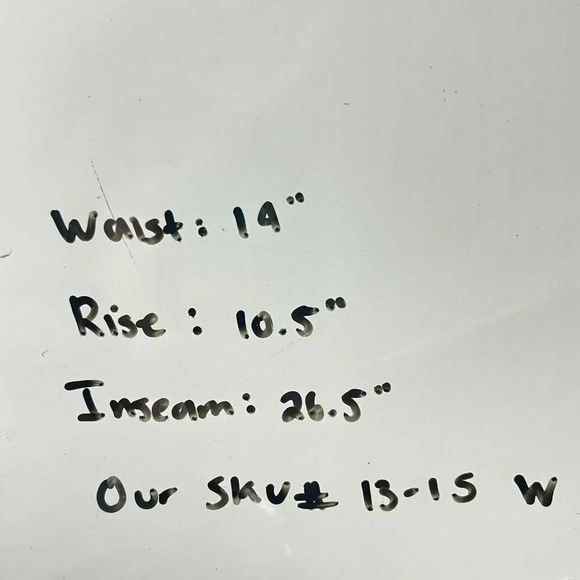 Waist: 14"
Rise: 10.5"
Inseam: 26.5"
Our SKU# 13-15 W